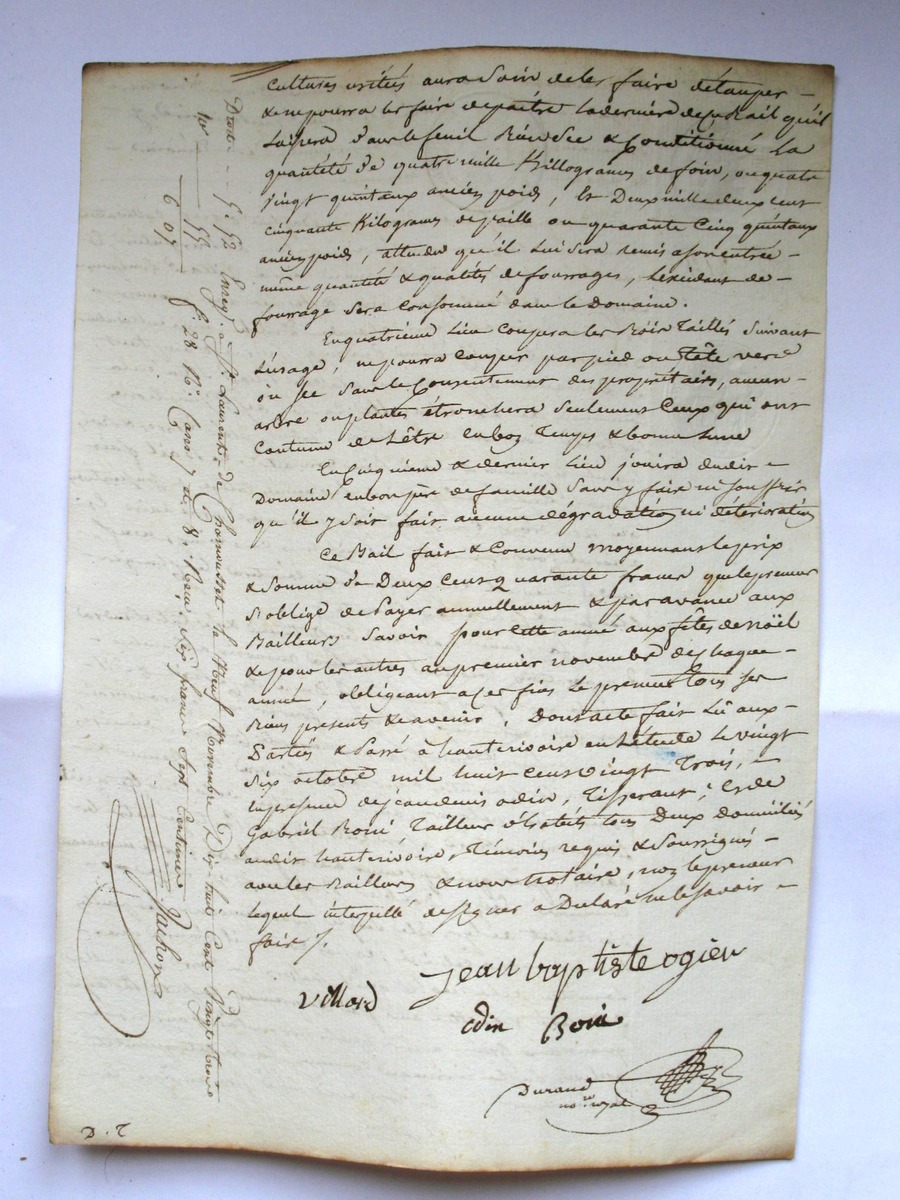 Cultures usitées aura Soin de les faire détauper –
& ne pourra les faire depaître la derniere de ce Bail qu'il
Laissera dans le fenil & Conditionné La
quantité de quatre mille Killogrames de foin, ou quatre
vingt quintaux ancien poids, Et Deux mille deux cent
cinquante Kilogrames de paille ou quarante Cinq quintaux
ancien poids, attendu qu'il Lui sera remis a son entrée –
même quantité & qualités de fourrages, L'exédent de –
fourrage Sera Consommé dans le Domaine.
En quatrieme Lieu Coupera les Bois Taillés Suivant
L'usage, ne pourra Couper par pied ou Tête verd
ou sec Sans le Consentement des propriétaires, aucun –
arbre ou plantes étronchera Seulement Ceux qui ont
Coutume de L'être en bon Temps & bonne Lune
En Cinquieme & dernier Lieu jouira dudit –
Domaine en bon père de famille Sans y faire ni Souffrir
qu'il y soit fait aucune dégradation ni déterioration
Ce Bail fait & Convenu moyennant le prix
& Somme de Deux Cent quarante francs que le preneur
S'oblige de Payer annuellement & par avance aux
Bailleurs Savoir pour Cette année aux fêtes de noël
& pour les autres au premier novembre de chaque –
année, obligeant a ces fins le preneur Tous ses
Biens presents & avenir, Dont acte fait Lû aux –
Parties & Passé à hauterivoire en L'étude Le vingt
Six octobre mil huit Cent vingt Trois, –
en presence de jean denis odin, Tisserant, et de
Gabriel Boni Tailleur d'habits tous Deux domiciliés
audit hauterivoire, Témoins requis & Soussignés –
avec les Bailleurs & nous Notaire, non le preneur
lequel interpellé de signer a Declaré ne le savoir –
fair /.
Villard
jean baptiste ogier
odin
Boni
Durand
no.re royal
D. T
Enreg. a St Laurent de Chamousset le Neuf Novembre Dix huit Cent Vingt trois
f. 28 R. Cases 7 et 8. Reçu Six francs Sept Centimes
Vachon
Droit 5. 52
10e 55
6 07